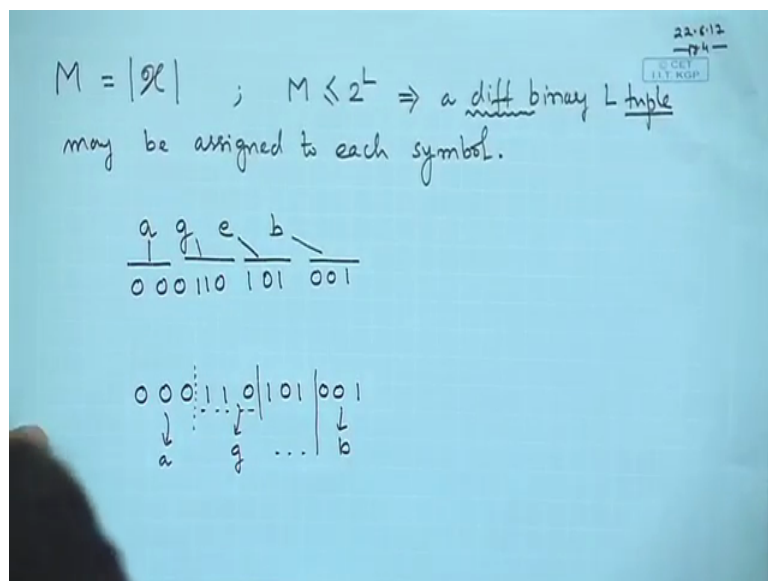 22.6.12
© CET
I.I.T. KGP
M = |𝒳| ; M ≤ 2^L ⇒ a diff binary L tuple
may be assigned to each symbol.
a g e b
000 110 101 001
000 110 101 001
a g ... b